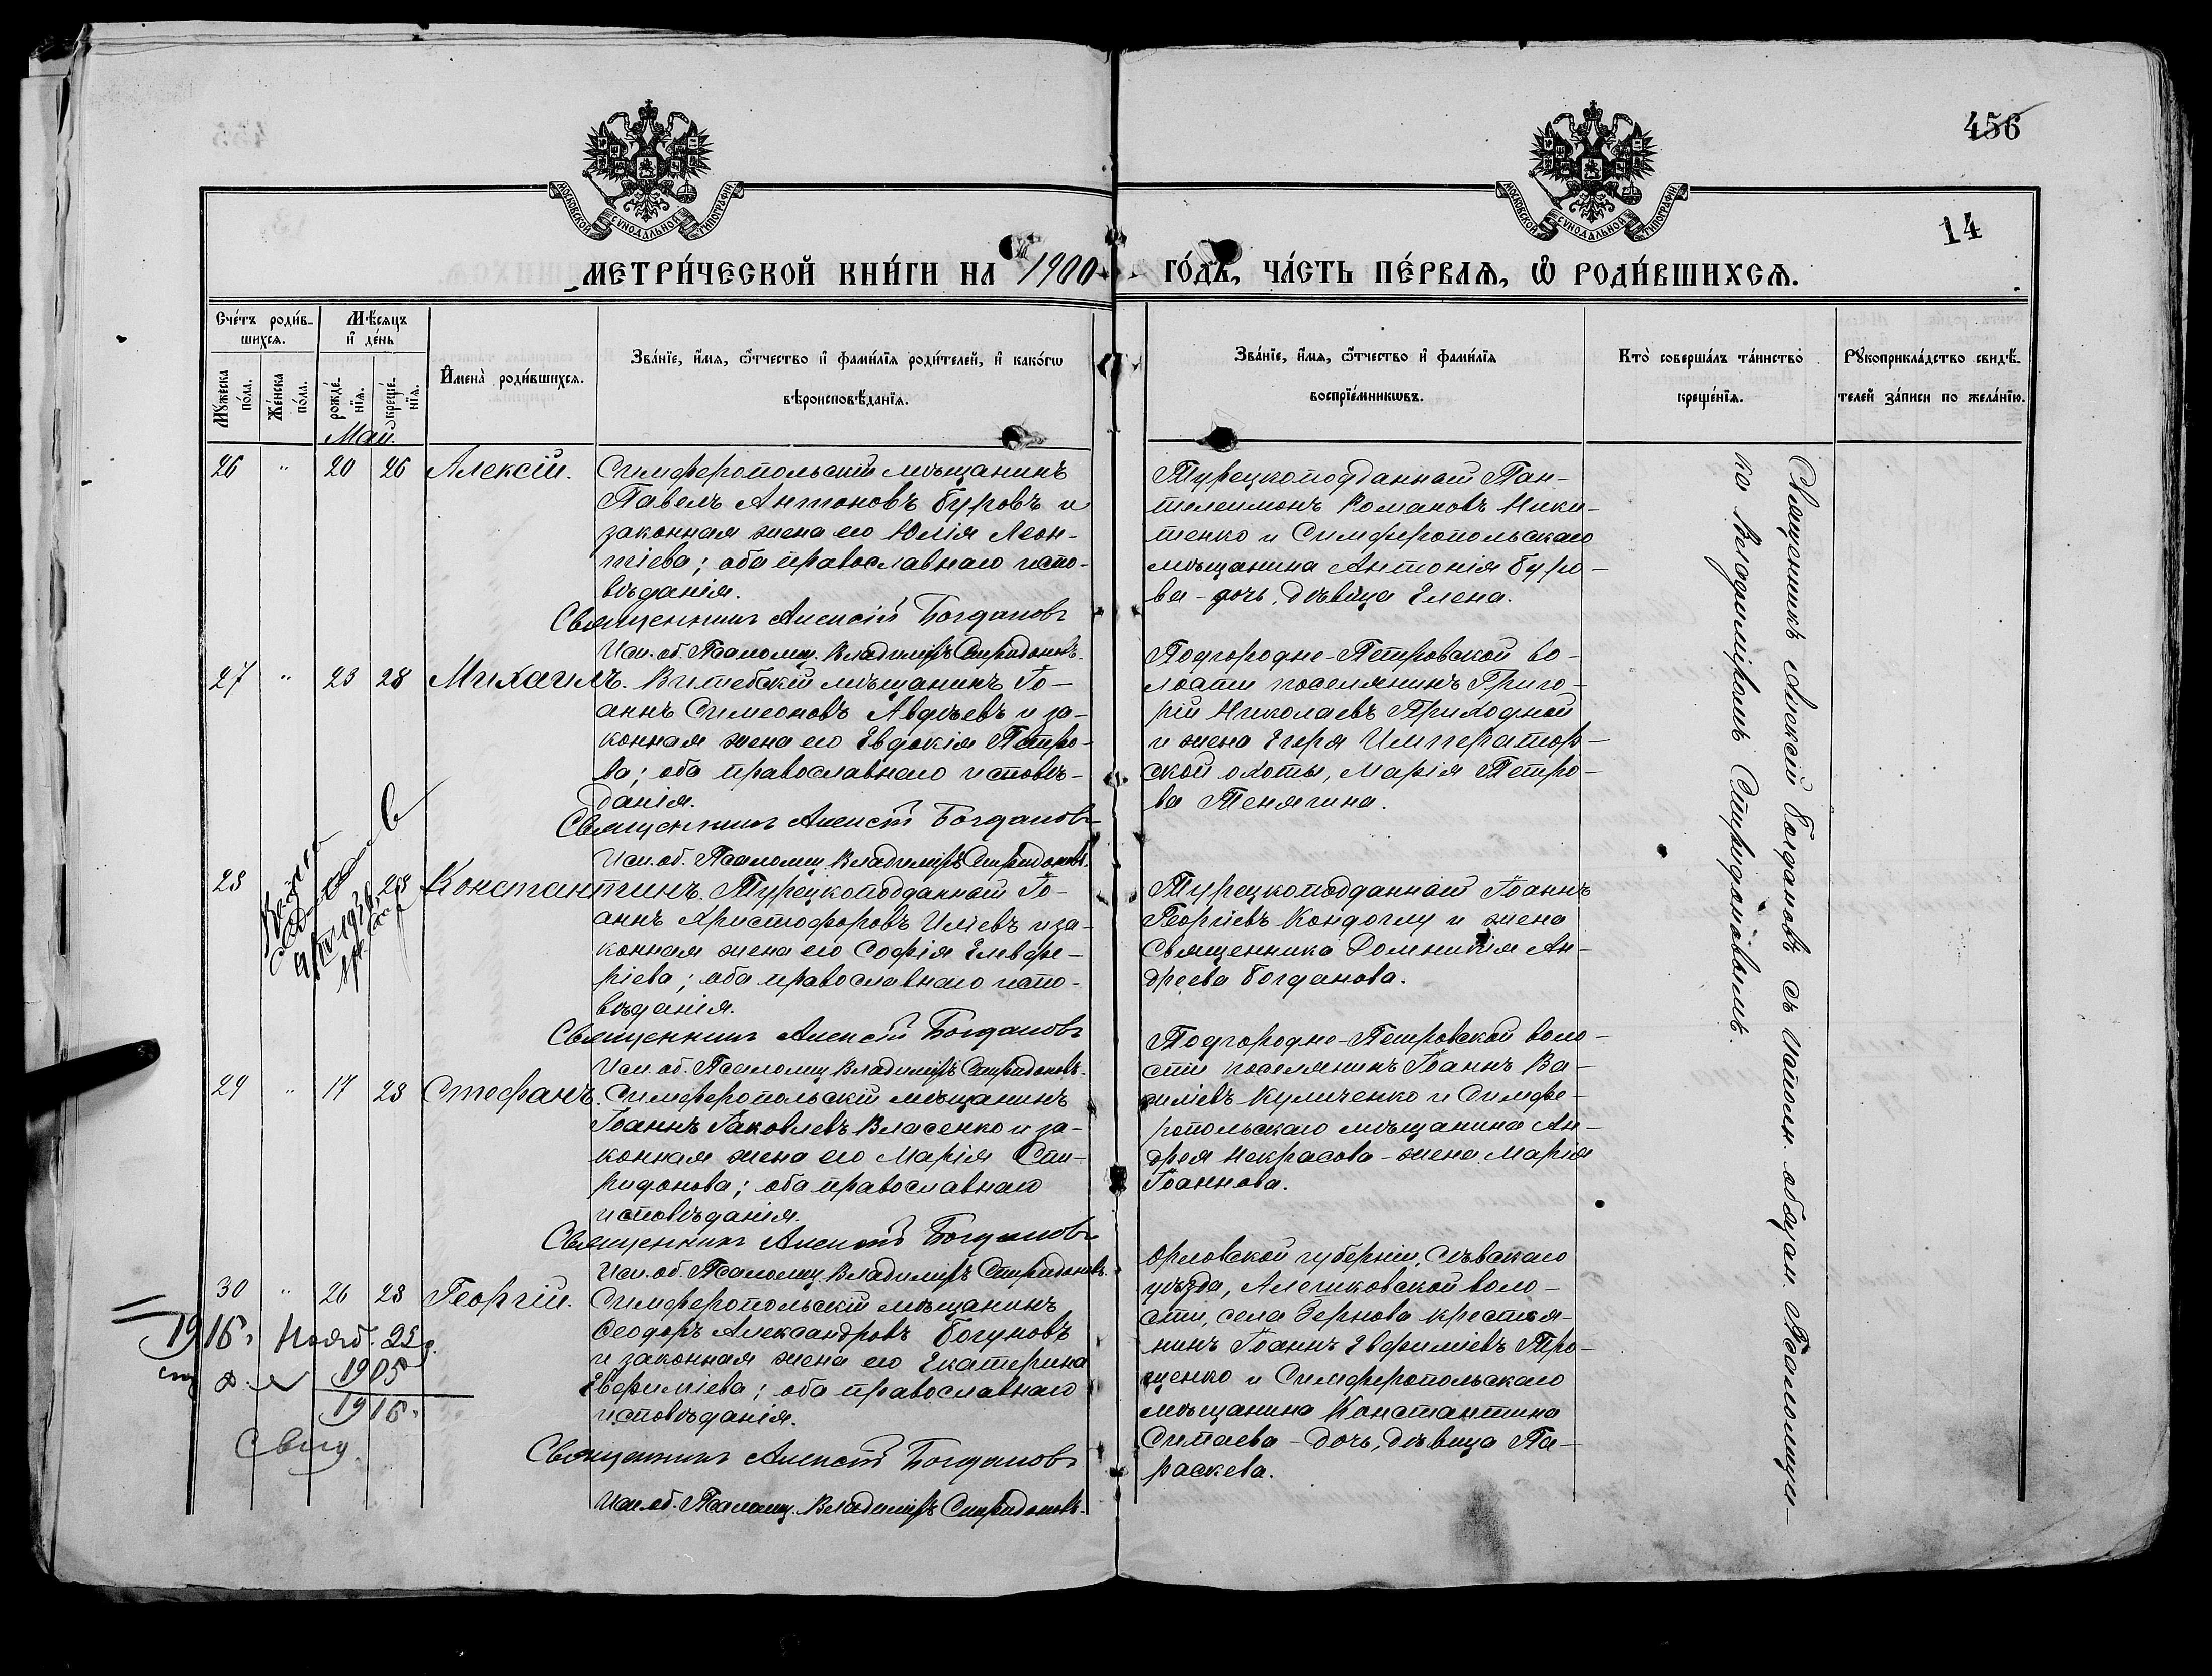 456
14
МОСКОВСКОЙ СѴНОДАЛЬНОЙ ТИПОГРАФІИ
МОСКОВСКОЙ СѴНОДАЛЬНОЙ ТИПОГРАФІИ
МЕТРИ́ЧЕСКОЙ КНИ́ГИ НА 1900 ГО́ДЪ, ЧА́СТЬ ПЕ́РВАѦ, Ѡ҆ РОДИ́ВШИХСѦ.
Сче́тъ роди́в-
шихсѧ.
Мѣ́сѧцъ
и҆ де́нь
Мꙋ́жеска по́ла.
Же́нска по́ла.
рожде́-
нїѧ.
креще́-
нїѧ.
И҆мена̀ роди́вшихсѧ.
Зва́нїе, и҆́мѧ, ѻ҆́тчество и҆ фами́лїѧ роди́телей, и҆ како́гѡ
вѣроисповѣ́данїѧ.
Зва́нїе, и҆́мѧ, ѻ҆́тчество и҆ фами́лїѧ
воспрїе́мникѡвъ.
Кто̀ соверша́лъ та́инство
креще́нїѧ.
Рꙋкоприкла́дство свидѣ́-
телей за́писи по жела́нїю.
Май.
26 " 20 26 Алексій. Симферопольскій мѣщанинъ
Павелъ Антоновъ Буровъ и
законная жена его Юлія Леон-
тіева; оба православнаго испо-
вѣданія.
Священникъ Алексій Богдановъ
Исп. об. Псаломщ. Владиміръ Спиридоновъ.
Турецкоподданный Пан-
телеимонъ Романовъ Ники-
тенко и Симферопольскаго
мѣщанина Антонія Буро-
ва - дочь, дѣвица Елена.
27 " 23 28 Михаилъ. Витебскій мѣщанинъ Іо-
аннъ Симеоновъ Авдѣевъ и за-
конная жена его Евдокія Петро-
ва; оба православнаго исповѣ-
данія.
Священникъ Алексій Богдановъ
Исп. об. Псаломщ. Владиміръ Спиридоновъ.
Подгородне-Петровской во-
лости поселянинъ Григо-
рій Николаевъ Приходной
и жена Егеря Император-
ской охоты, Марія Петро-
ва Тенягина.
28 28 Константинъ. Турецкоподданный Іо-
аннъ Христофоровъ Иліевъ и за-
конная жена его Софія Елевфе-
ріева; оба православнаго испо-
вѣданія.
Священникъ Алексій Богдановъ
Исп. об. Псаломщ. Владиміръ Спиридоновъ.
Турецкоподданный Іоаннъ
Георгіевъ Кондоглу и жена
Священника Домникія Ан-
дреева Богданова.
29 " 17 28 Стефанъ. Симферопольскій мѣщанинъ
Іоаннъ Іаковлевъ Власенко и за-
конная жена его Марія Спи-
ридонова; оба православнаго
исповѣданія.
Священникъ Алексій Богдановъ
Исп. об. Псаломщ. Владиміръ Спиридоновъ.
Подгородне-Петровской воло-
сти поселянинъ Іоаннъ Ва-
силіевъ Куличенко и Симфе-
ропольскаго мѣщанина Ан-
дрея Некрасова - жена Марія
Іоаннова.
30 " 26 28 Георгій. Симферопольскій мѣщанинъ
Ѳеодоръ Александровъ Богуновъ
и законная жена его Екатерина
Евфиміева; оба православнаго
исповѣданія.
Священникъ Алексій Богдановъ
Исп. об. Псаломщ. Владиміръ Спиридоновъ.
Орловской губерніи, Сѣвскаго
уѣзда, Алешковской воло-
сти, села Зернова крестья-
нинъ Іоаннъ Евфиміевъ Тро-
щенко и Симферопольскаго
мѣщанина Константина
Ситаева - дочь, дѣвица Па-
раскева.
1916. Нояб. 23
1905
1916.
Свид.
Священникъ Алексій Богдановъ съ исполн. обязан. Псаломщи-
ка Владиміромъ Спиридоновымъ.